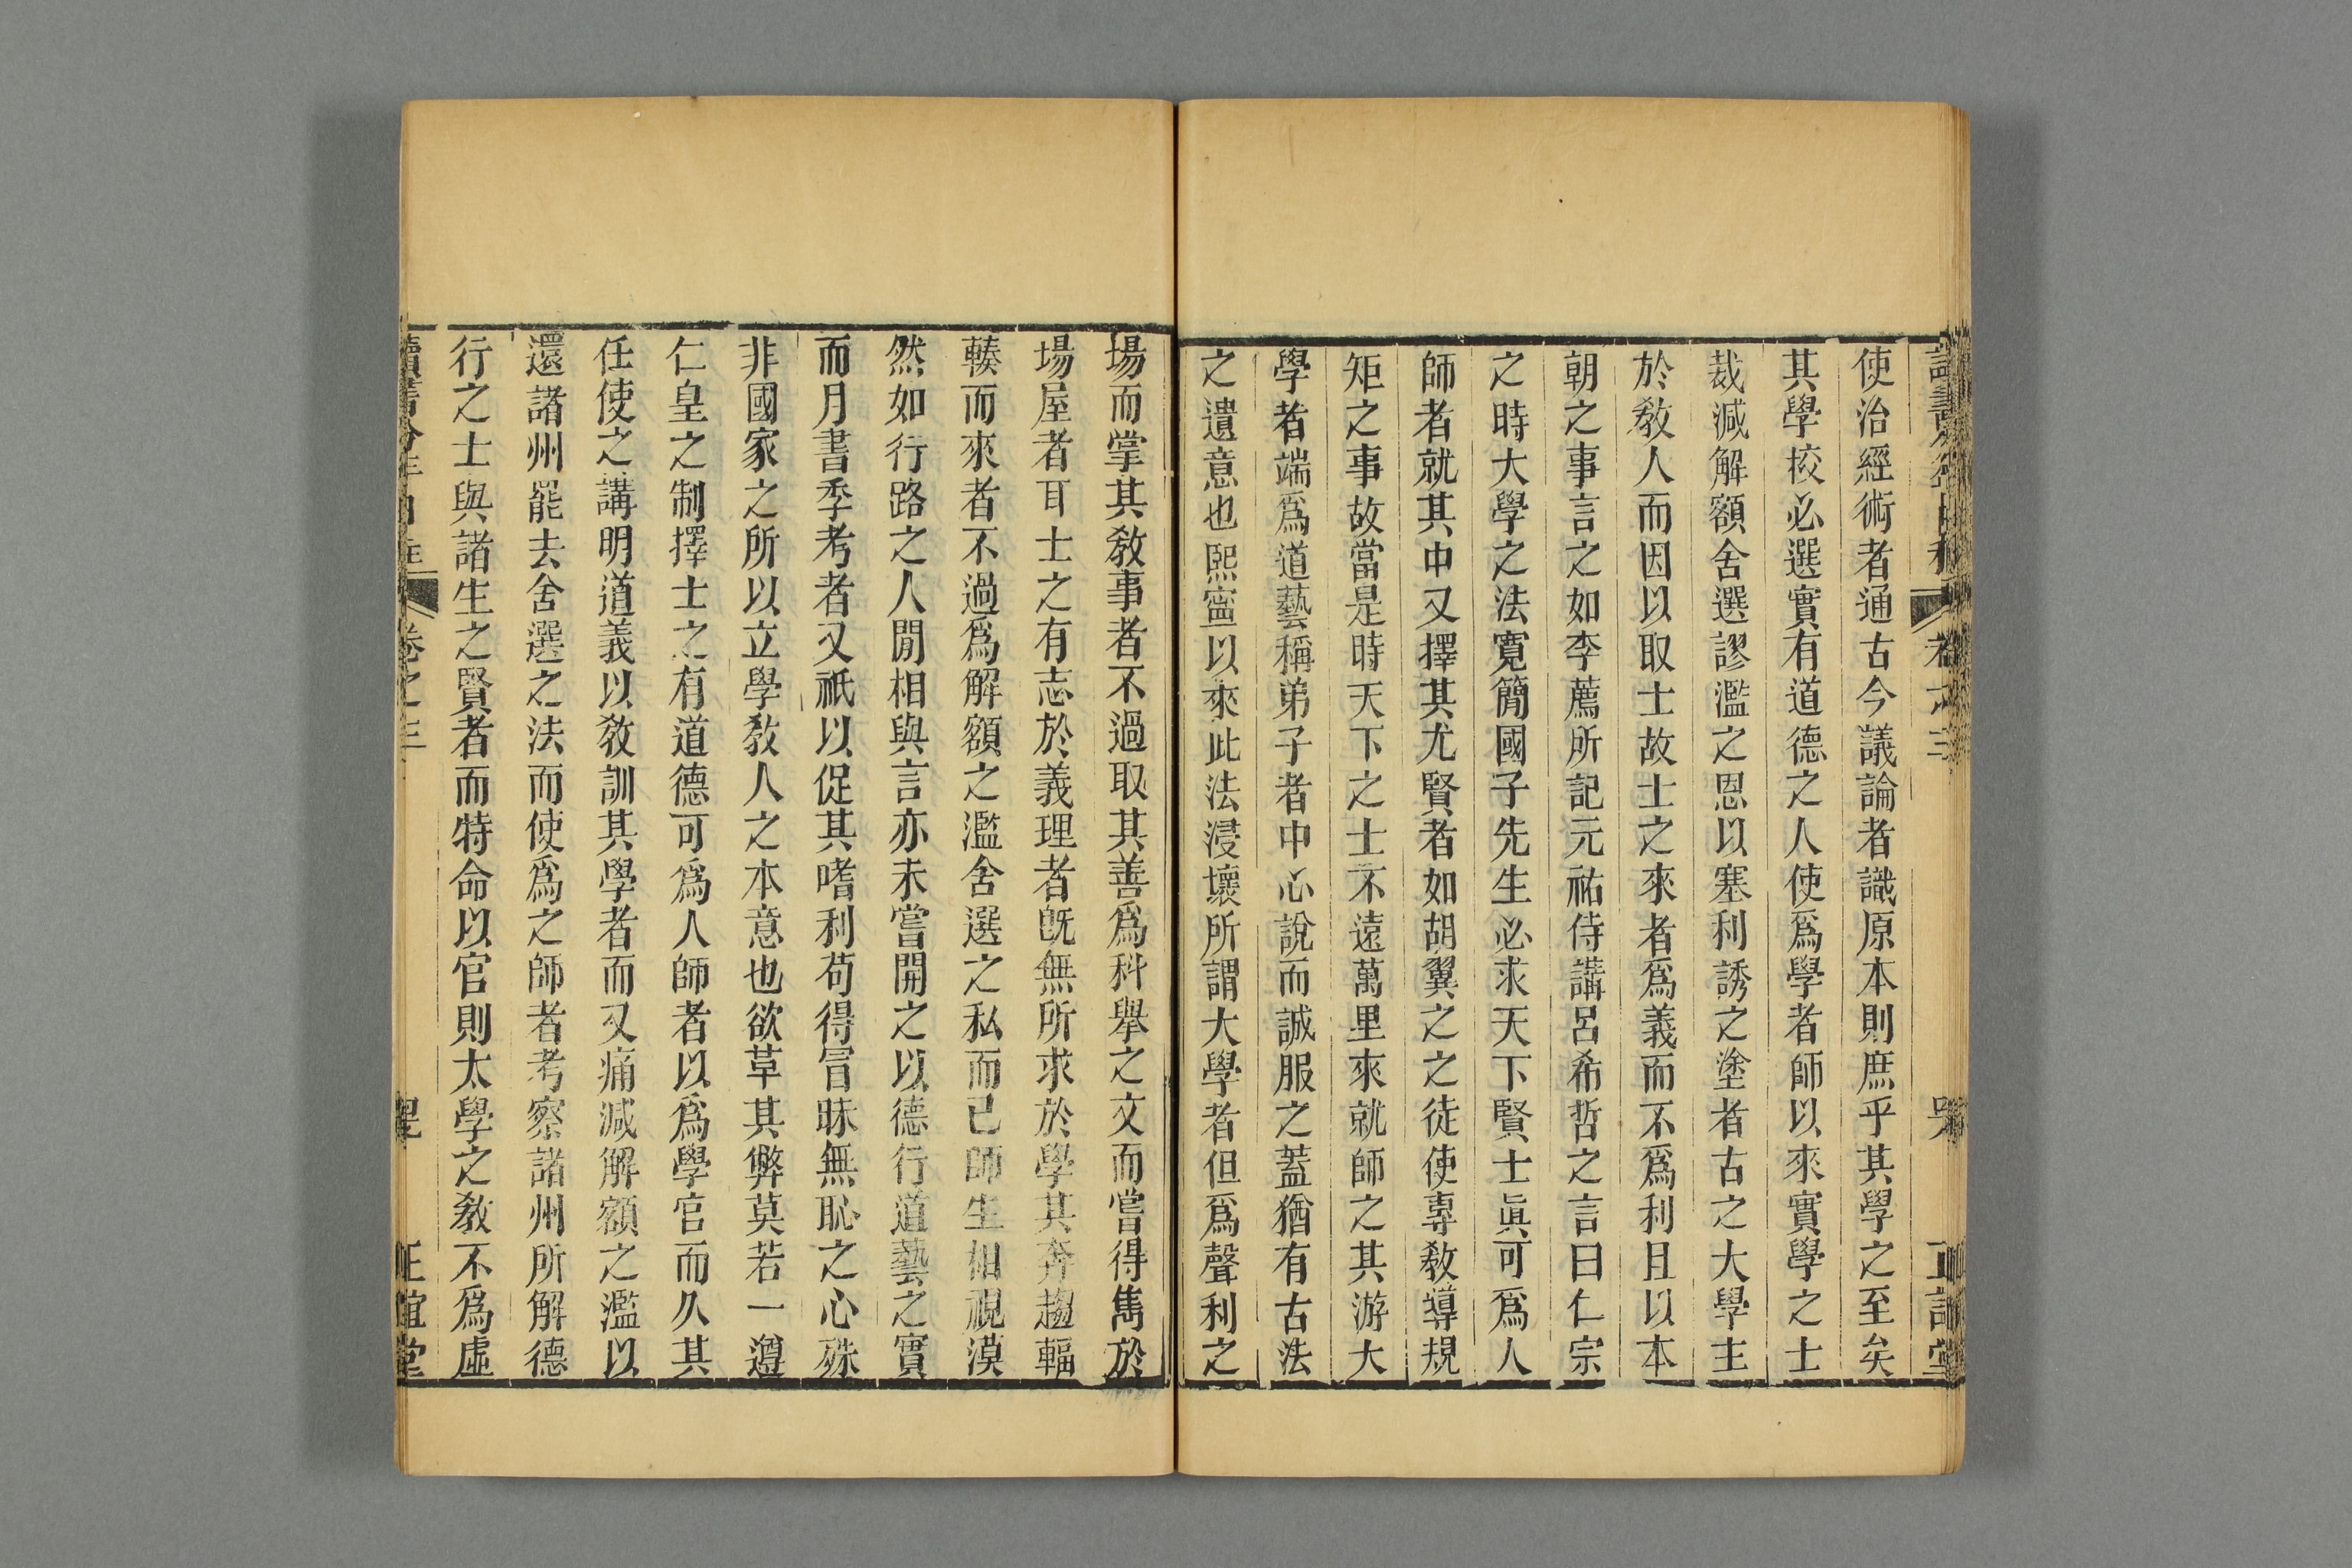 使治經術者通古今議論者識原本則庶乎其學之至矣
其學校必選實有道德之人使爲學者師以來實學之士
裁減解額舍選謬濫之恩以塞利誘之塗者古之大學主
於敎人而因以取士故士之來者爲義而不爲利且以本
朝之事言之如李廌所記元祐侍講呂希哲之言曰仁宗
之時大學之法寬簡國子先生必求天下賢士眞可爲人
師者就其中又擇其尤賢者如胡翼之之徒使專敎導規
矩之事故當是時天下之士不遠萬里來就師之其游大
學者端爲道藝稱弟子者中心說而誠服之蓋猶有古法
之遺意也熙寧以來此法浸壞所謂大學者但爲聲利之
場而掌其敎事者不過取其善爲科舉之文而嘗得雋於
場屋者耳士之有志於義理者旣無所求於學其奔趨輻
輳而來者不過爲解額之濫舍選之私而已師生相視漠
然如行路之人閒相與言亦未嘗開之以德行道藝之實
而月書季考者又祇以促其嗜利苟得冒昧無恥之心殊
非國家之所以立學敎人之本意也欲革其弊莫若一遵
仁皇之制擇士之有道德可爲人師者以爲學官而久其
任使之講明道義以敎訓其學者而又痛減解額之濫以
還諸州罷去舍選之法而使爲之師者考察諸州所解德
行之士與諸生之賢者而特命以官則太學之敎不爲虛
讀書分年日程 卷之三 正誼堂